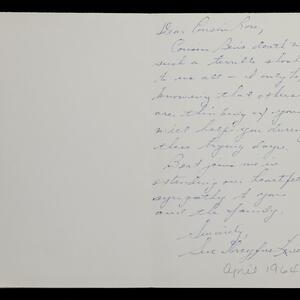 Dear Cousin Rose,
Cousin Ben's death was
such a terrible shock
to us all - I only hope
knowing that others
are thinking of you
will help you during
these trying days.
Bert joins me in
extending our heartfelt
sympathy to you
and the family.
Sincerely,
Sue Dreyfus
April 1964